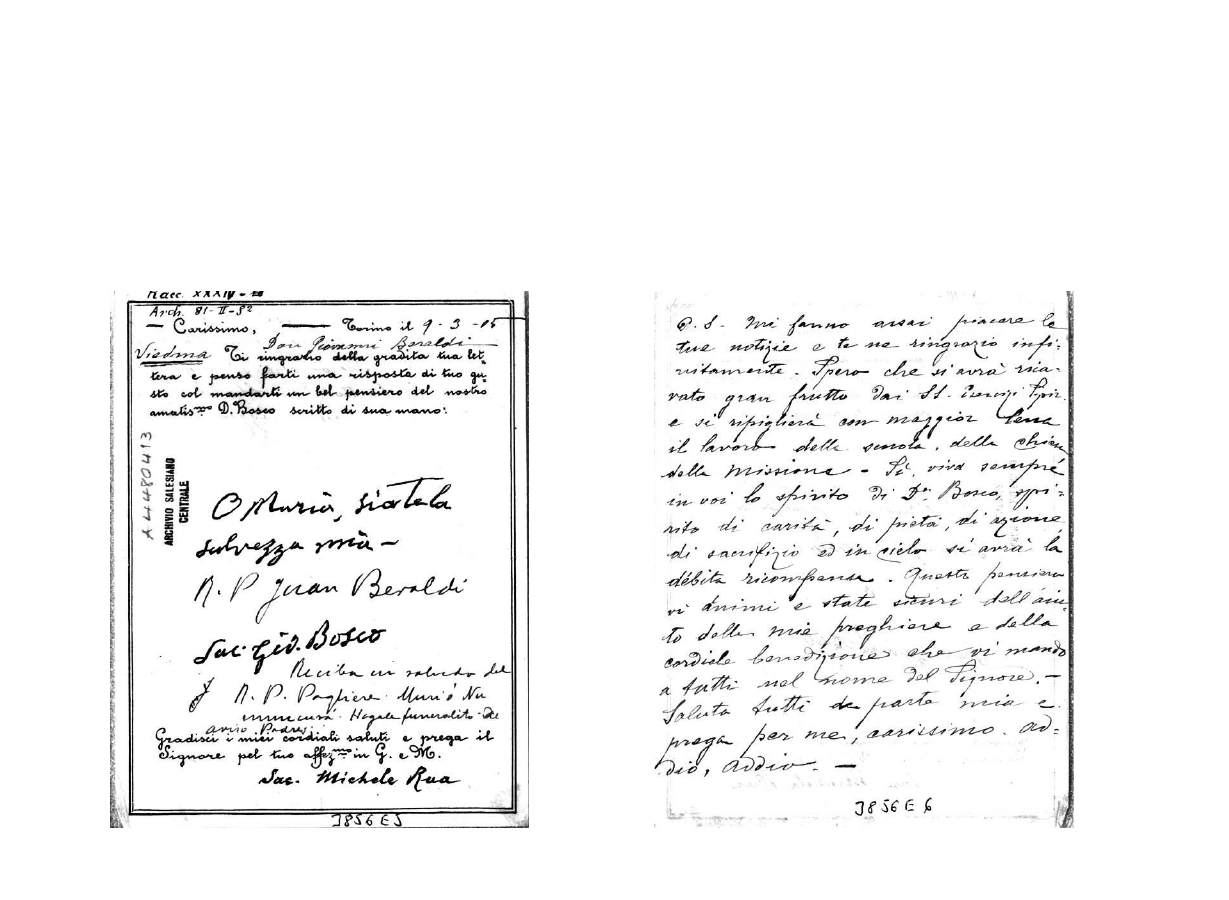 Racc. XXXIV-
Arch. 81-II-52
— Carissimo, —— Torino il 9-3-05
Don Giovanni Beraldi
Viedma Ti ringrazio della gradita tua let-
tera e penso farti una risposta di tuo gu-
sto col mandarti un bel pensiero del nostro
amatis.mo D. Bosco scritto di sua mano:
A4480413
ARCHIVIO SALESIANO
CENTRALE
O Maria, siate la
salvezza mia —
R. P Juan Beraldi
Sac. Gio. Bosco
Reciba un saludo del
R. P. Pagliere. Murió
Hagale funeralito de
aviso Padres
Gradisci i miei cordiali saluti e prega il
Signore pel tuo affez.mo in G. e M.
Sac. Michele Rua
J856E5
P. S. Mi fanno assai piacere le
tue notizie e te ne ringrazio infi-
nitamente. Spero che si avrà rica-
vato gran frutto dai SS. Esercizi Spir.
e si ripiglierà con maggior lena
il lavoro della scuola, della chiesa
della Missione - Sì, viva sempre
in voi lo spirito di Dn. Bosco, spi-
rito di carità, di pietà, di azione
di sacrifizio ed in cielo si avrà la
débita ricompensa. Questo pensiero
vi ánimi e state sicuri dell'aiu-
to delle mie preghiere e della
cordiale benedizione che vi mando
a tutti nel nome del Signore. -
Saluta tutti da parte mia e
prega per me, carissimo. Ad-
dio, addio. —
J856E6